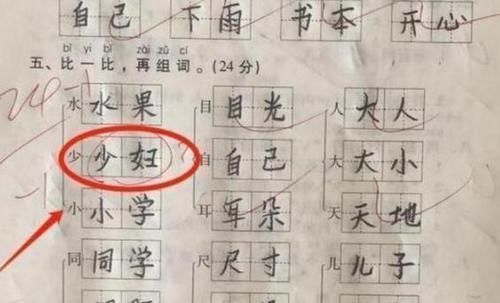 自己 下雨 书本 开心
bǐ yi bǐ zài zǔ cí
五、比一比，再组词。(24分)
水 水果 目 目光 人 大人
少 少妇 自 自己 大 大小
小 小学 耳 耳朵 天 天地
同 同学 尺 尺寸 儿 儿子